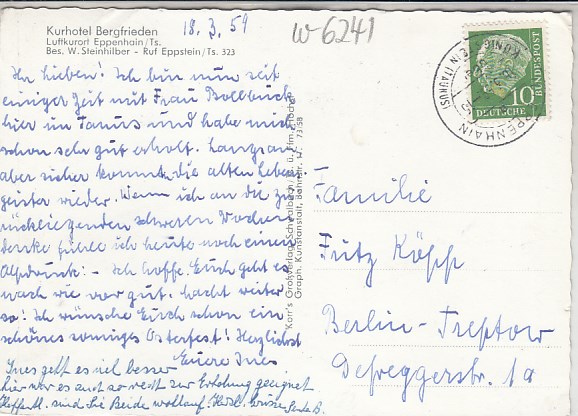 Kurhotel Bergfrieden
Luftkurort Eppenhain/Ts.
Bes. W. Steinhilber - Ruf Eppstein/Ts. 323
18.3.59
W-6241
Ihr Lieben! Ich bin nun seit
einiger Zeit mit Frau
hier im Taunus und habe mich
schon sehr gut erholt. Langsam
aber sicher kommen die alten Lebens-
geister wieder. Wenn ich an die zu-
rückliegenden schweren Wochen
denke fühle ich heute noch einen
Alpdruck. - Ich hoffe Euch geht es
nach wie vor gut. Macht weiter
so! Ich wünsche Euch schon ein
schönes sonniges Osterfest! Herzlichst
Eure Ines
Ines geht es viel besser
hier wär es auch so recht zur Erholung geeignet
Hoffentl. sind Sie Beide wohlauf Herzl. Grüsse
Karr's Großverlag, Schwalbach/Ts. ü. Ffm.-Höchst
Graph. Kunstanstalt, Bahnstr. 14. 73/58
10
DEUTSCHE
BUNDESPOST
EPPENHAIN
(TAUNUS)
Familie
Fritz Köpp
Berlin-Treptow
Defreggerstr. 1a